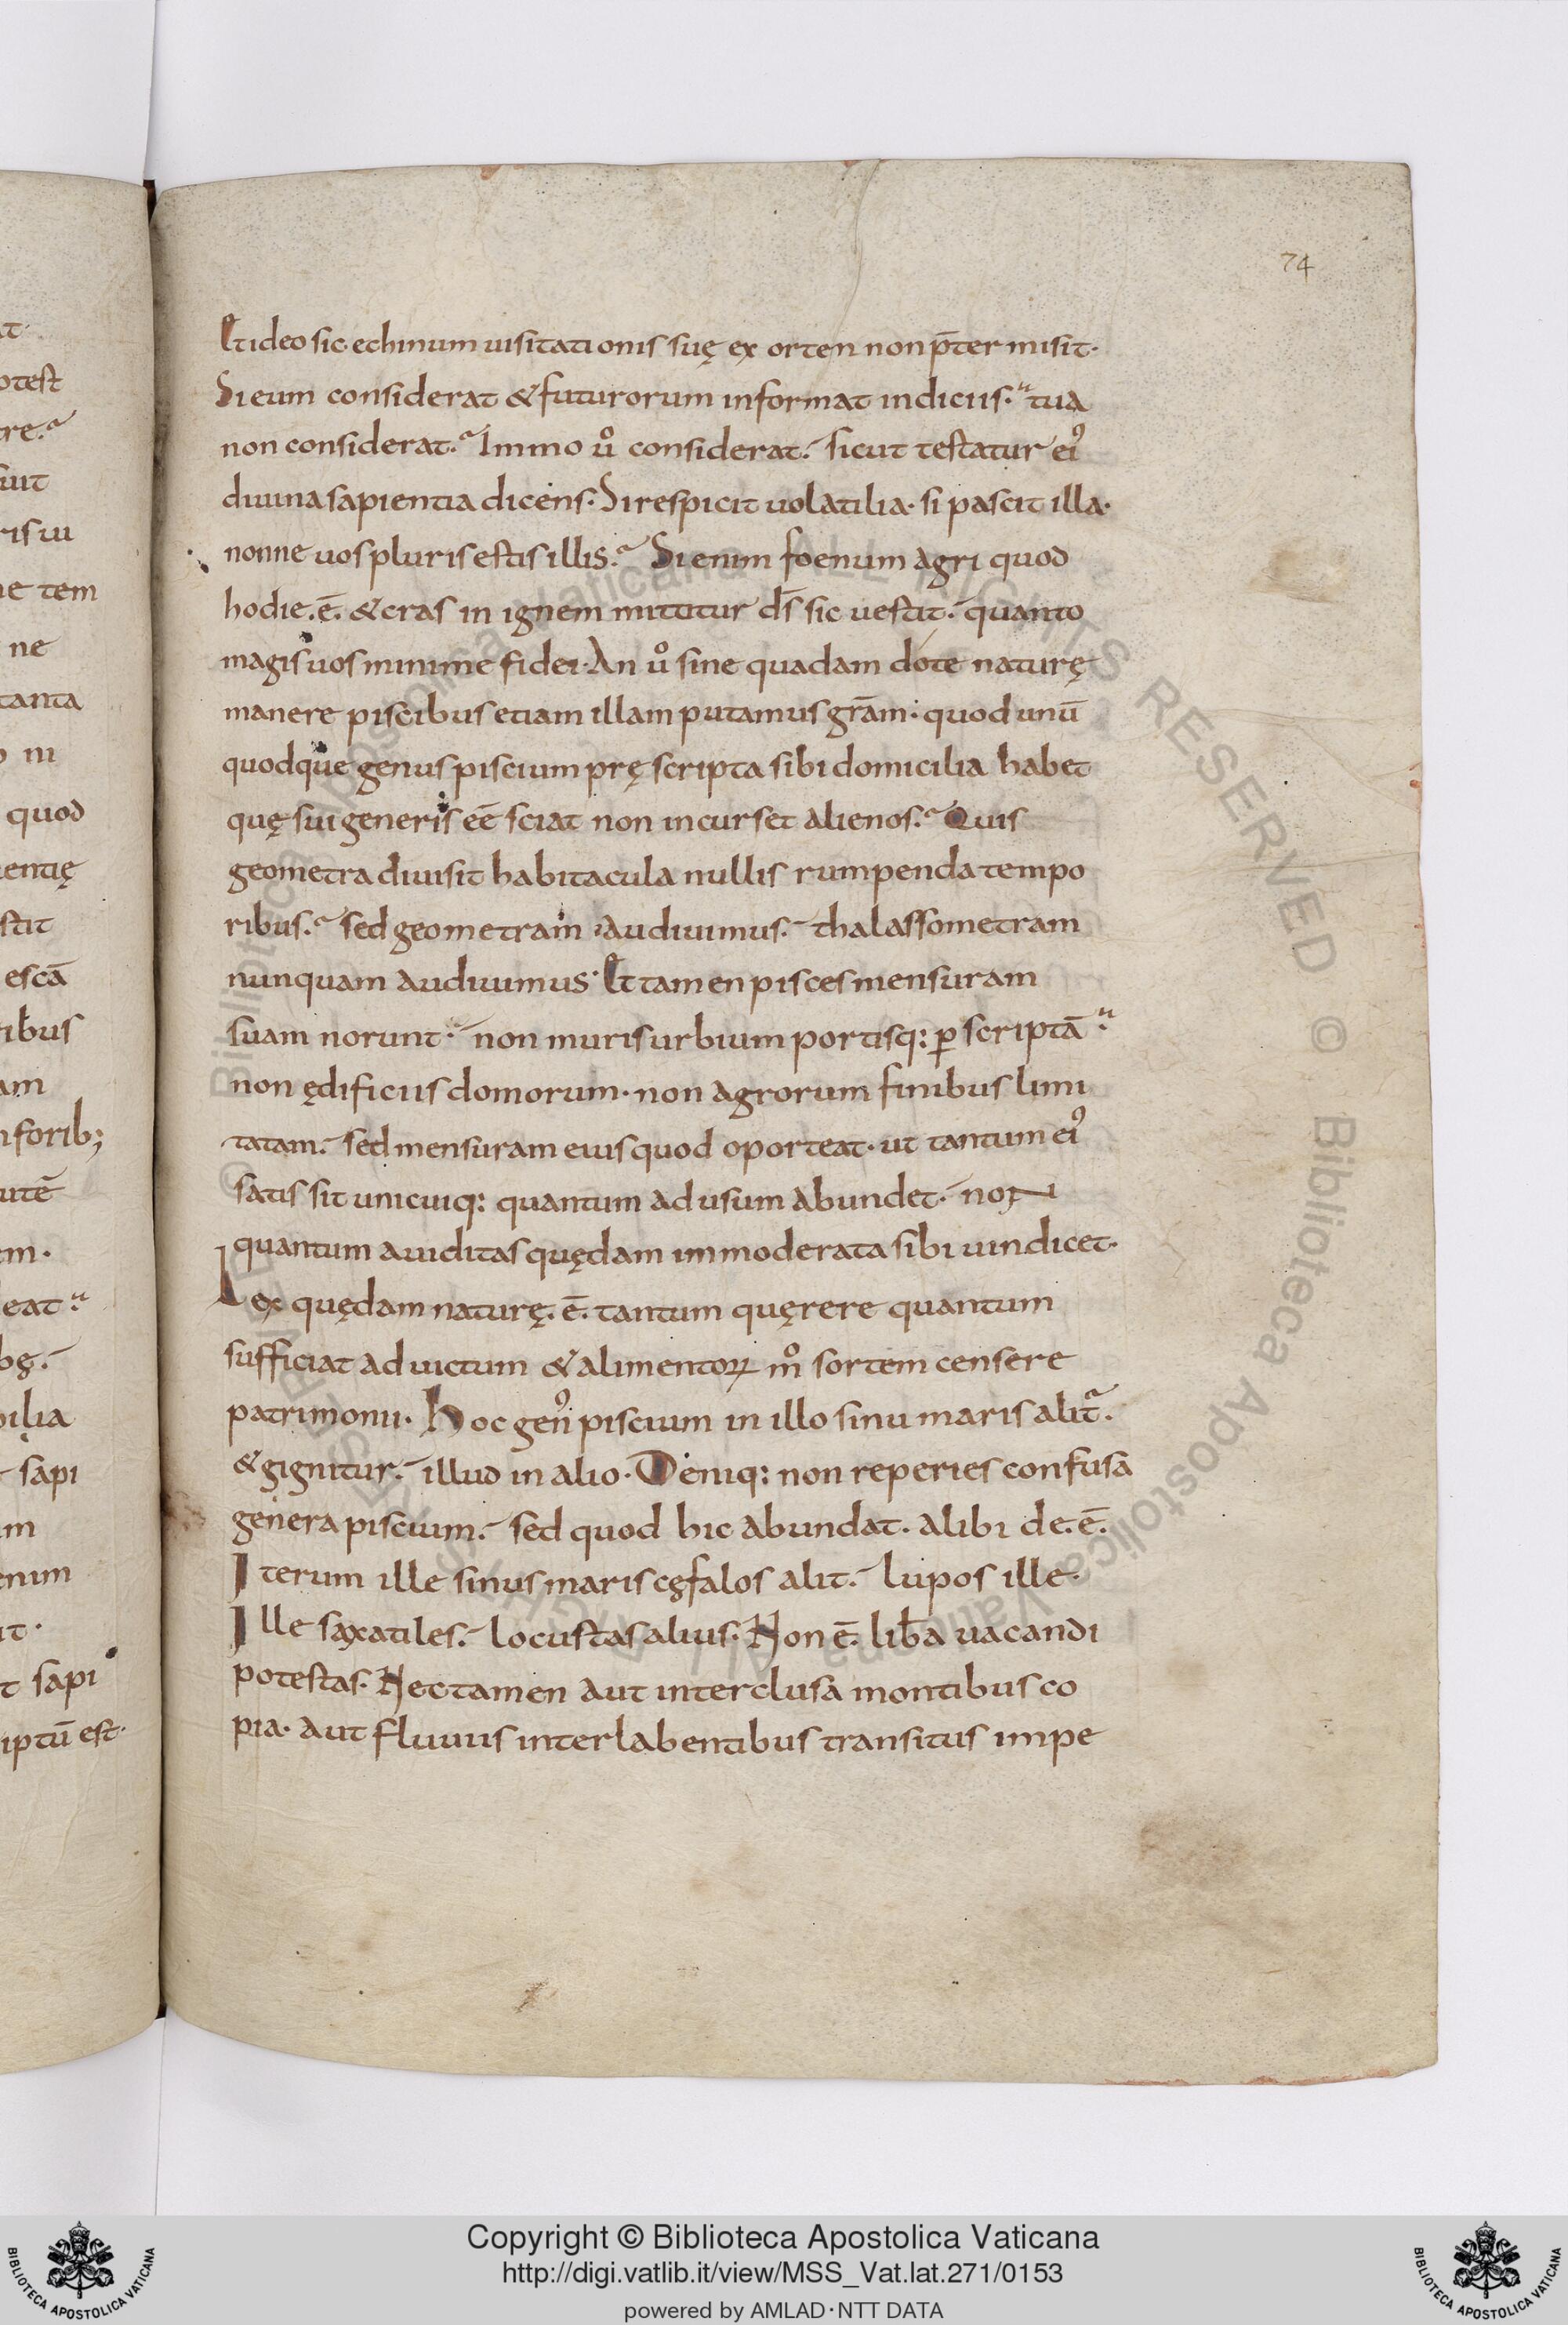 74
Et ideo sic echinum uisitationis suę ex orten non p̄ter misit·
Si eum considerat & futurorum informat indiciis· tua
non considerat· Immo uͦ considerat· sicut testatur ei᾽
diuina sapientia dicens· Si respicit uolatilia· si pascit illa·
nonne uos pluris estis illis· Si enim foenum agri quod
hodie·ē· & cras in ignem mittitur ds̄ sic uestit· quanto
magis uos minime fidei· An uͦ sine quadam dote naturę
manere piscibus etiam illam putamus grām· quod unū
quodque genus piscium pręscripta sibi domicilia habet
quę sui generis eē sciat non incurset alienos· Quis
geometra diuisit habitacula nullis rumpenda tempo
ribus· sed geometram audiuimus· thalassometram
nunquam audiuimus· Et tamen pisces mensuram
suam norunt· non muris urbium portisq: ꝑscriptā·
non ędificiis domorum· non agrorum finibus limi
tatam· sed mensuram eius quod oporteat· ut tantum ei᾽
satis sit unicuiq: quantum ad usum abundet· non
quantum auiditas quędam immoderata sibi uindicet·
Lex quędam naturę·ē· tantum quęrere quantum
sufficiat ad uictum & alimentoꝝ mͦ sortem censere
patrimonii· Hoc gen᾽ piscium in illo sinu maris alit᷑·
& gignitur· illud in alio· Deniq: non reperies confusa
genera piscium· sed quod hic abundat· alibi de·ē·
Iterum ille sinus maris cęfalos alit· lupos ille·
Ille saxatiles· locustas alius· Non ē· lib̄a uacandi
potestas· Nec tamen aut interclusa montibus co
pia· aut fluuiis interlabentibus transitus impe
Copyright © Biblioteca Apostolica Vaticana
http://digi.vatlib.it/view/MSS_Vat.lat.271/0153
powered by AMLAD·NTT DATA